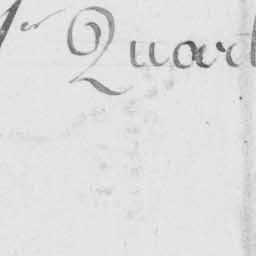 er Quart